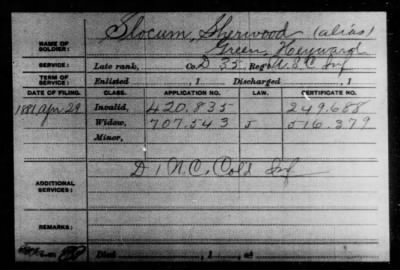 Slocum, Sherwood (alias)
NAME OF SOLDIER: Green, Heyward
SERVICE: Late rank, Co. D 35 Reg't U.S.C. Inf
TERM OF SERVICE: Enlisted , 1 Discharged , 1
DATE OF FILING. CLASS. APPLICATION NO. LAW. CERTIFICATE NO.
1881 Apr. 29 Invalid, 420.835 249.688
Widow, 707.543 5 516.379
Minor,
ADDITIONAL SERVICES: D 1 N.C. Cold Inf
REMARKS:
Died , 1 , at